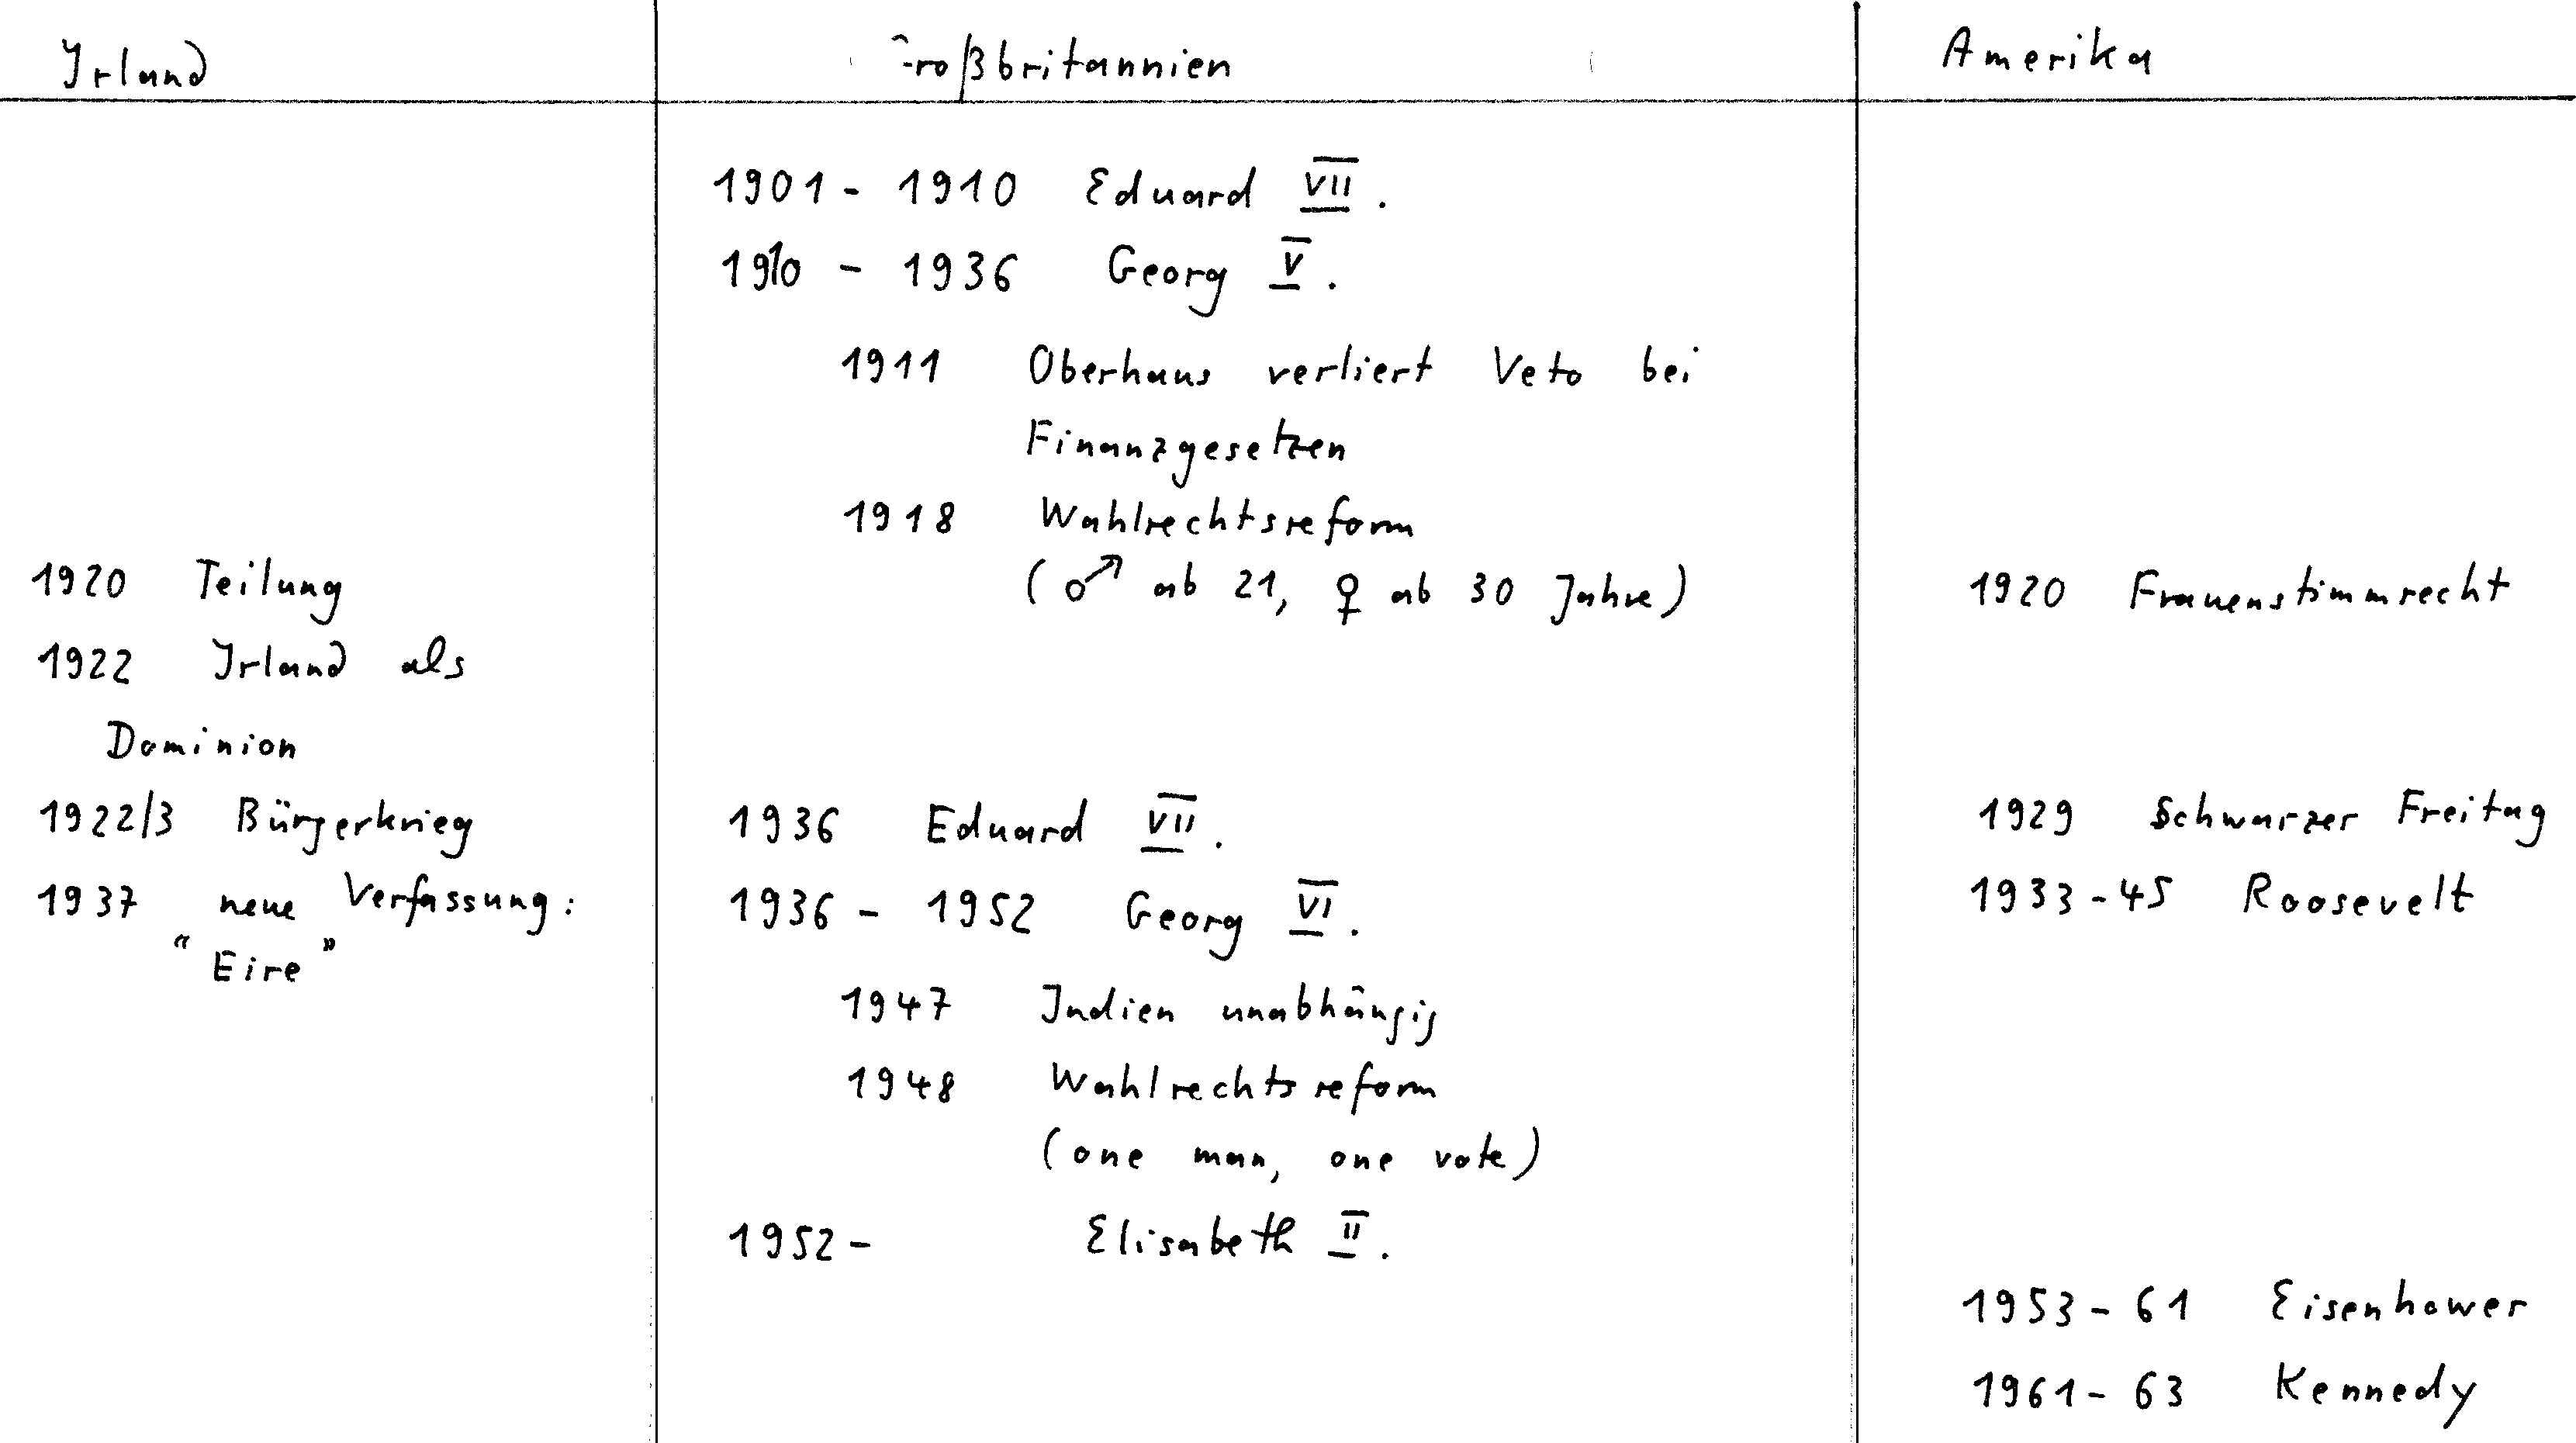 Irland
Großbritannien
Amerika
1901 - 1910 Eduard VII.
1910 - 1936 Georg V.
1911 Oberhaus verliert Veto bei
Finanzgesetzen
1918 Wahlrechtsreform
(♂ ab 21, ♀ ab 30 Jahre)
1920 Teilung
1920 Frauenstimmrecht
1922 Irland als
Dominion
1922/3 Bürgerkrieg
1936 Eduard VII.
1929 Schwarzer Freitag
1937 neue Verfassung:
"Eire"
1936 - 1952 Georg VI.
1933 - 45 Roosevelt
1947 Indien unabhängig
1948 Wahlrechtsreform
(one man, one vote)
1952 - Elisabeth II.
1953 - 61 Eisenhower
1961 - 63 Kennedy